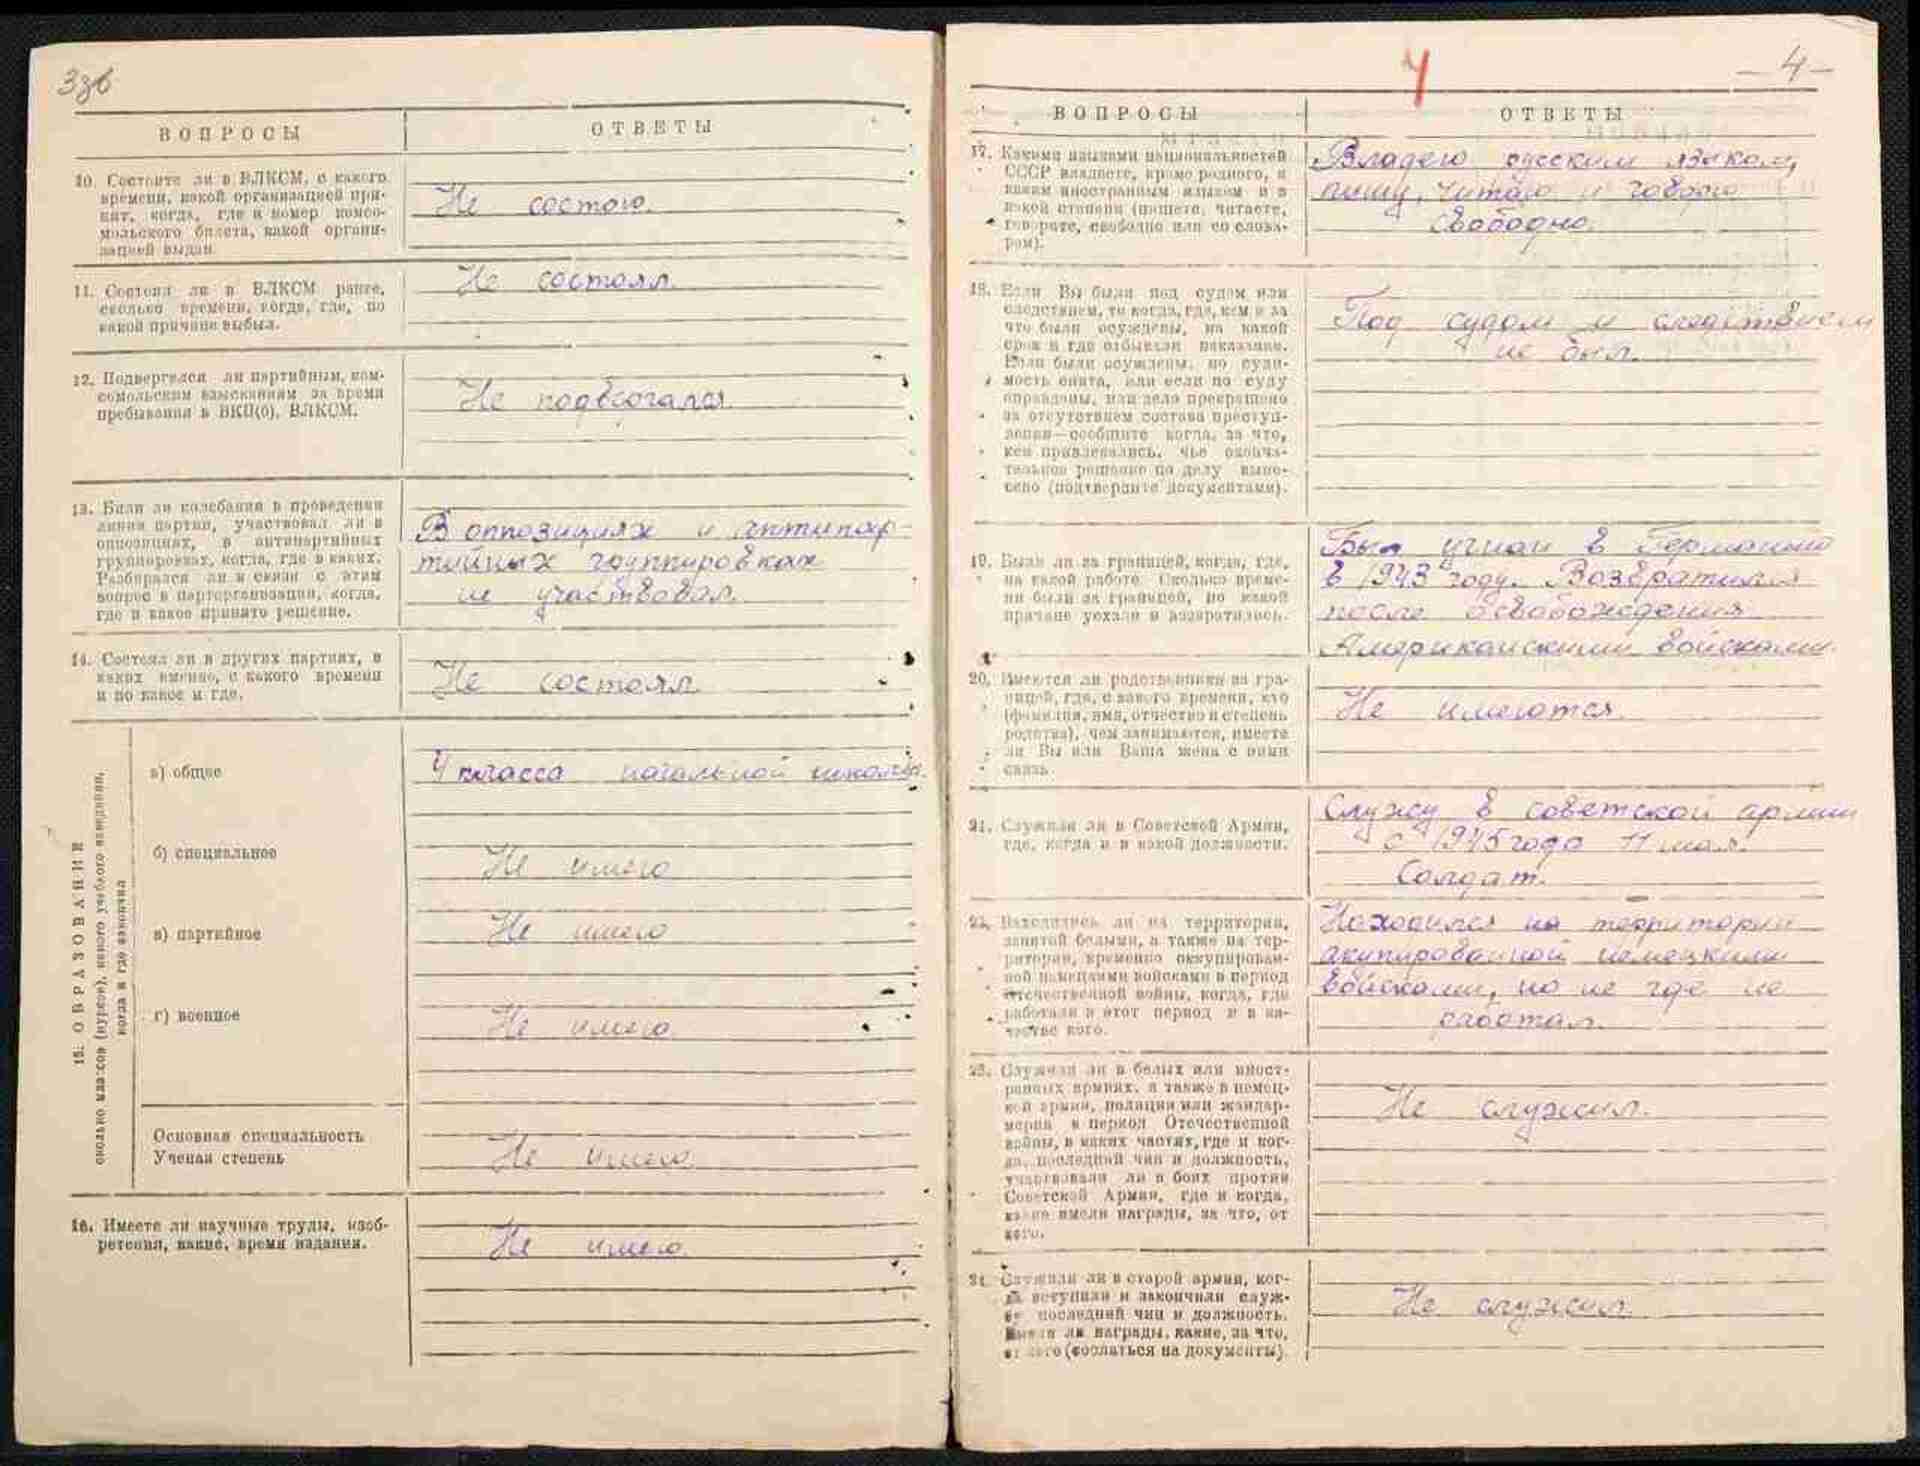 3об
ВОПРОСЫ
ОТВЕТЫ
10. Состоите ли в ВЛКСМ, с какого
времени, какой организацией при-
нят, когда, где и номер комсо-
мольского билета, какой органи-
зацией выдан.
Не состою.
11. Состоял ли в ВЛКСМ ранее,
сколько времени, когда, где, по
какой причине выбыл.
Не состоял.
12. Подвергался ли партийным, ком-
сомольским взысканиям за время
пребывания в ВКП(б), ВЛКСМ.
Не подвергался.
13. Были ли колебания в проведении
линии партии, участвовал ли в
оппозициях, в антипартийных
группировках, когда, где в каких.
Разбирался ли в связи с этим
вопрос в парторганизации, когда,
где и какое принято решение.
В оппозициях и антипар-
тийных группировках
не участвовал.
14. Состоял ли в других партиях, в
каких именно, с какого времени
и по какое и где.
Не состоял.
15. ОБРАЗОВАНИЕ
сколько классов (курсов), какого учебного заведения,
когда и где закончил
а) общее
4 класса начальной школы.
б) специальное
Не имею
в) партийное
Не имею
г) военное
Не имею.
Основная специальность
Ученая степень
Не имею.
16. Имеете ли научные труды, изоб-
ретения, какие, время издания.
Не имею.
4
– 4 –
ВОПРОСЫ
ОТВЕТЫ
17. Какими языками национальностей
СССР владеете, кроме родного, и
каким иностранным языком и в
какой степени (пишете, читаете,
говорите, свободно или со слова-
рем).
Владею русским языком,
пишу, читаю и говорю
свободно.
18. Если Вы были под судом или
следствием, то когда, где, кем и за
что были осуждены, на какой
срок и где отбывали наказание.
Если были осуждены, но суди-
мость снята, или если по суду
оправданы, или дело прекращено
за отсутствием состава преступ-
ления—сообщите когда, за что,
кем привлекались, чье оконча-
тельное решение по делу выне-
сено (подтвердите документами).
Под судом и следствием
не был.
19. Были ли за границей, когда, где,
на какой работе. Сколько време-
ни были за границей, по какой
причине уехали и возвратились.
Был угнан в Германию
в 1943 году. Возвратился
после освобождения
Американскими войсками.
20. Имеются ли родственники за гра-
ницей, где, с какого времени, кто
(фамилия, имя, отчество и степень
родства), чем занимаются, имеете
ли Вы или Ваша жена с ними
связь.
Не имеются.
21. Служили ли в Советской Армии,
где, когда и в какой должности.
Служу в советской армии
с 1945 года 11 мая.
Солдат.
22. Находились ли на территории,
занятой белыми, а также на тер-
ритории, временно оккупирован-
ной немецкими войсками в период
отечественной войны, когда, где
работали в этот период и в ка-
честве кого.
Находился на территории
акупированной немецкими
войсками, но не где не
работал.
23. Служили ли в белых или иност-
ранных армиях, а также в немец-
кой армии, полиции или жандар-
мерии в период Отечественной
войны, в каких частях, где и ког-
да, последний чин и должность,
участвовали ли в боях против
Советской Армии, где и когда,
какие имели награды, за что, от
кого.
Не служил.
24. Служили ли в старой армии, ког-
да вступили и закончили служ-
бу последний чин и должность.
Имели ли награды, какие, за что,
от кого (сослаться на документы)
Не служил.